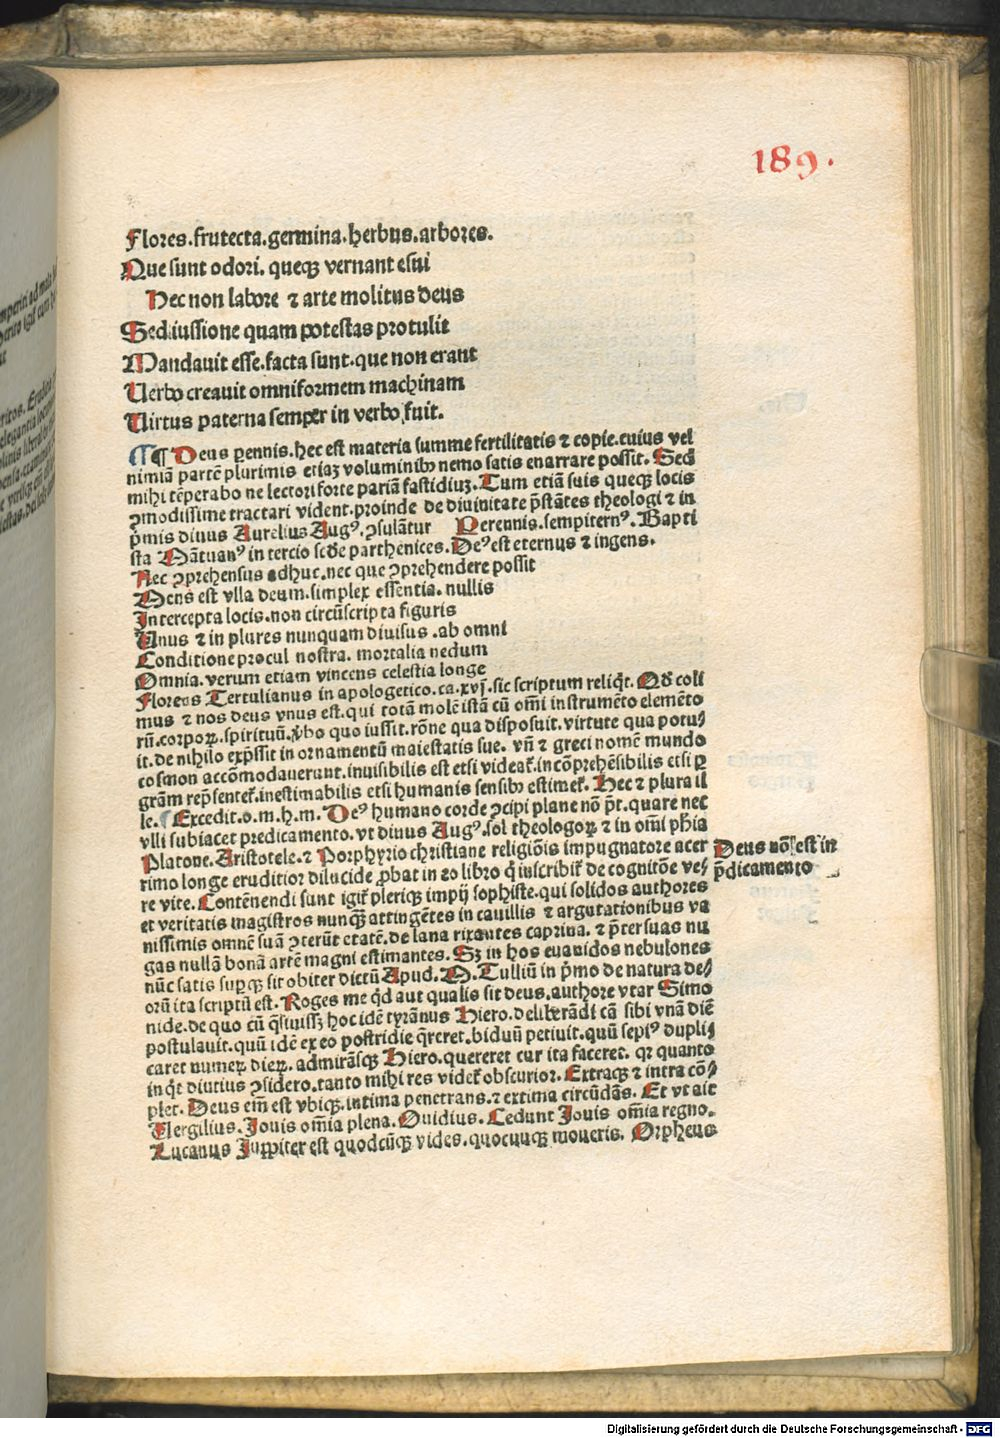 189.
Flores.frutecta.germina.herbus.arbores.
Que sunt odori. queqꝫ vernant esui
Hec non labore ⁊ arte molitus deus
Sed iussione quam potestas protulit
Mandauit esse.facta sunt.que non erant
Uerbo creauit omniformem machinam
Uirtus paterna semper in verbo fuit.
¶ Deus ꝑennis.hec est materia summe fertilitatis ⁊ copie.cuius vel
nimiā partē plurimis etiaꝫ voluminibꝰ nemo satis enarrare possit. Sed
mihi tēperabo ne lectori forte pariā fastidiuꝫ. Tum etiā suis queqꝫ locis
ꝯmodissime tractari vident.proinde de diuinitate p̄stātes theologi ⁊ in
p̄mis diuus Aurelius Augꝰ. ꝯsulātur Perennis.sempiternꝰ. Bapti
sta Mātuanꝰ in tercio scđe parthenices. Deꝰ est eternus ⁊ ingens.
Nec ꝯprehensus adhuc.nec que ꝯprehendere possit
Mens est vlla deum.simplex essentia. nullis
Intercepta locis.non circūscripta figuris
Unus ⁊ in plures nunquam diuisus .ab omni
Conditione procul nostra. mortalia nedum
Omnia.verum etiam vincens celestia longe
Florens Tertulianus in apologetico.ca.xvij.sic scriptum reliq̄t. Qđ coli
mus ⁊ nos deus vnus est.qui totā molē istā cū om̄i instrumēto elemēto
rū.corpoꝝ.spirituū.v̄bo quo iussit.rōne qua disposuit.virtute qua potu/
it.de nihilo exp̄ssit in ornamentū maiestatis sue. vn̄ ⁊ greci nomē mundo
cosmon accōmodauerunt.inuisibilis est etsi videat̄.incōprehēsibilis etsi ꝑ
grām rep̄sentet̄.inestimabilis etsi humanis sensibꝰ estimet̄. Hec ⁊ plura il
le. ¶ Excedit.o.m.h.m. Deꝰ humano corde ꝯcipi plane nō p̄t.quare nec
vlli subiacet predicamento.vt diuus Augꝰ.sol theologoꝝ ⁊ in om̄i ph̄ia
Platone.Aristotele.⁊ Porphyrio christiane religiōis impugnatore acer
rimo longe eruditior dilucide ꝓbat in eo libro q̄ inscribit̄ de cognitōe ve/
re vite. Contēnendi sunt igit̄ pleriqꝫ impij sophiste.qui solidos authores
et veritatis magistros nunqꝫ attingētes in cauillis ⁊ argutationibus va
nissimis omnē suā ꝯterūt etatē.de lana rixantes caprina. ⁊ p̄ter suas nu
gas nullā bonā artē magni estimantes. Sꝫ in hos euanidos nebulones
nūc satis suꝑqꝫ sit obiter dictū Apud. M. Tulliū in p̄mo de natura de/
orū ita scriptū est. Roges me q̄d aut qualis sit deus.authore vtar Simo
nide.de quo cū q̄siuissꝫ hoc idē tyrānus Hiero.deliberādi cā sibi vnā diē
postulauit.quū idē ex eo postridie q̄reret.biduū petiuit.quū sepiꝰ dupli/
caret numeꝝ dieꝝ. admirāsqꝫ Hiero.quereret cur ita faceret. qꝛ quanto
inq̄t diutius ꝯsidero.tanto mihi res videt̄ obscurior. Extraqꝫ ⁊ intra cō/
plet. Deus em̄ est vbiqꝫ.intima penetrans.⁊ extima circūdās. Et vt ait
Uergilius. Jouis om̄ia plena. Ouidius. Cedunt Jouis om̄ia regno.
Lucanus Juppiter est quodcūqꝫ vides.quocunqꝫ moueris. Orpheus
Deus nō est in
p̄dicamento
Digitalisierung gefördert durch die Deutsche Forschungsgemeinschaft - DFG